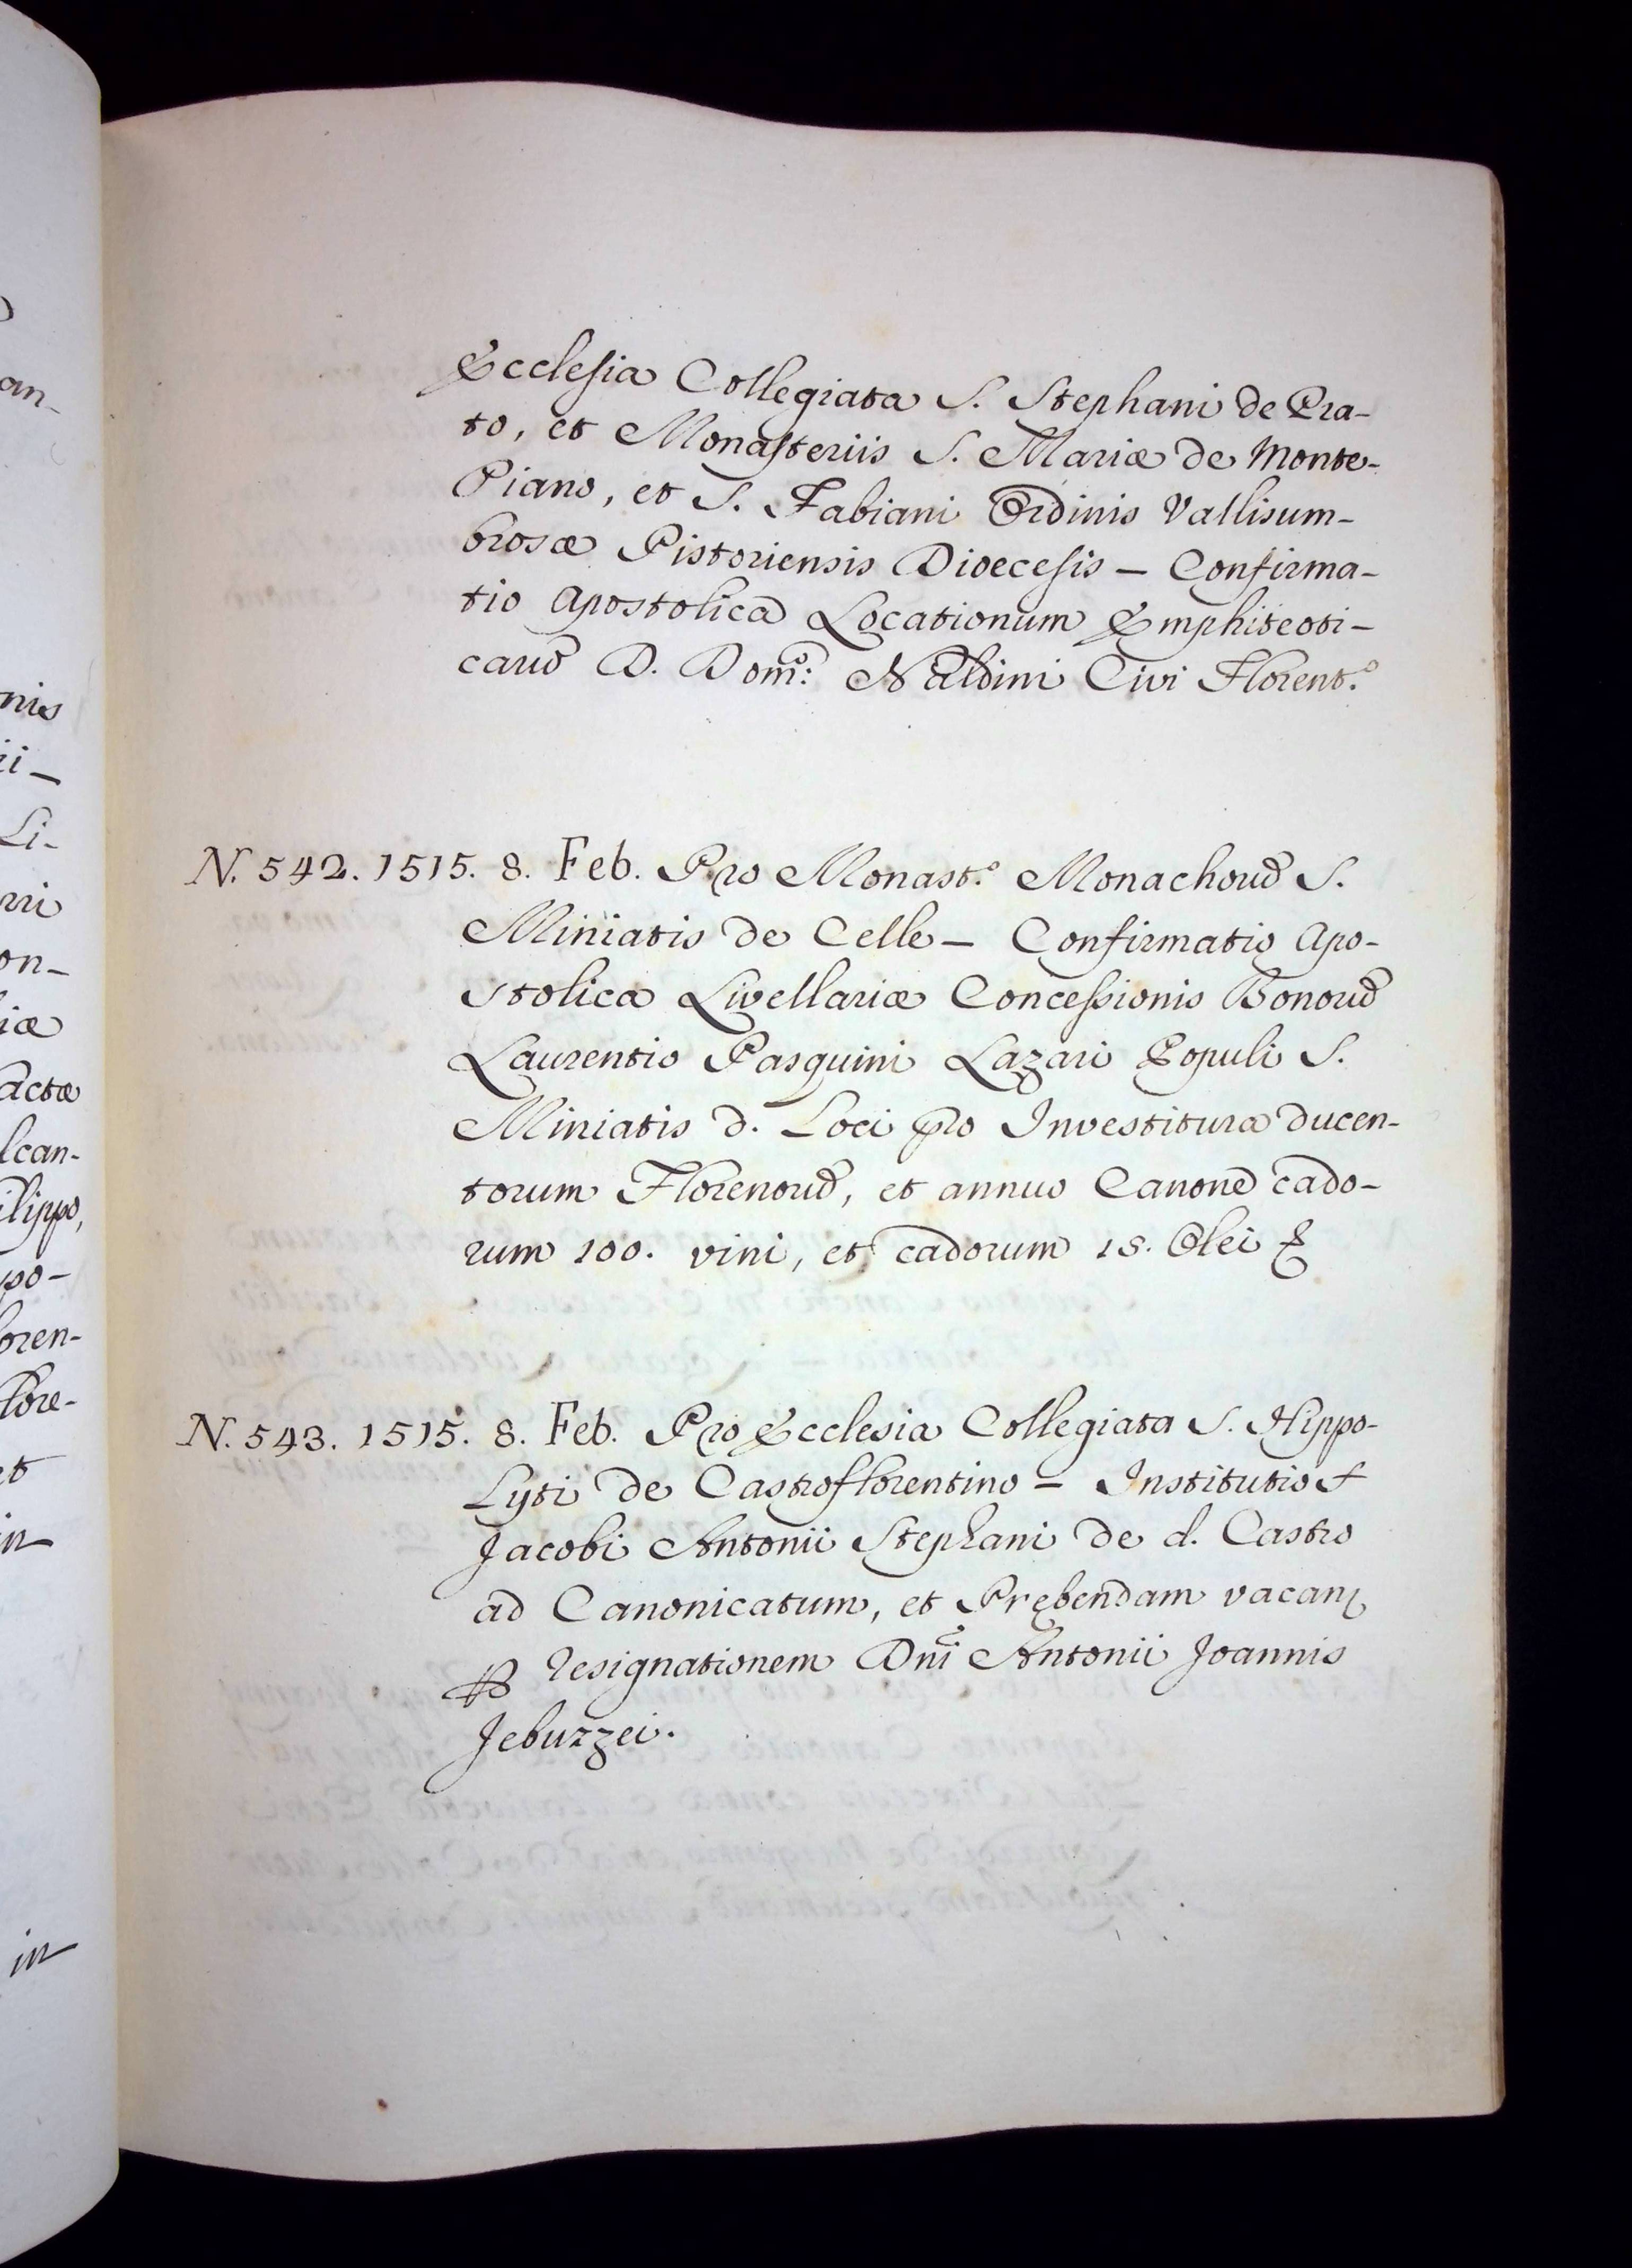 an-
nis
ii-
Li-
rii
on-
iæ
actæ
lcan-
ilippo,
po-
oren-
lore-
et
in
in
Ecclesia Collegiata S. Stephani de Pra-
to, et Monasteriis S. Mariæ de Monte-
Piano, et S. Fabiani Ordinis Vallisum-
brosæ Pistoriensis Dioecesis – Confirma-
tio Apostolica Locationum Emphiteoti-
carũ D. Dom: Naldini Civi Florent.º
N. 542. 1515. 8. Feb. Pro Monast.º Monachorũ S.
Miniatis de Celle – Confirmatio Apo-
stolica Livellariæ Concessionis Bonorũ
Laurentio Pasquini Lazari Populi S.
Miniatis d. Loci pro Investitura ducen-
torum Florenorũ, et annuo Canone cado-
rum 100. vini, et cadorum 15. Olei &
N. 543. 1515. 8. Feb. Pro Ecclesia Collegiata S. Hippo-
Lyti de Castroflorentino – Institutio
Jacobi Antonii Stephani de d. Castro
ad Canonicatum, et Prębendam vacan
resignationem Dñi Antonii Joannis
Jebuzzei.